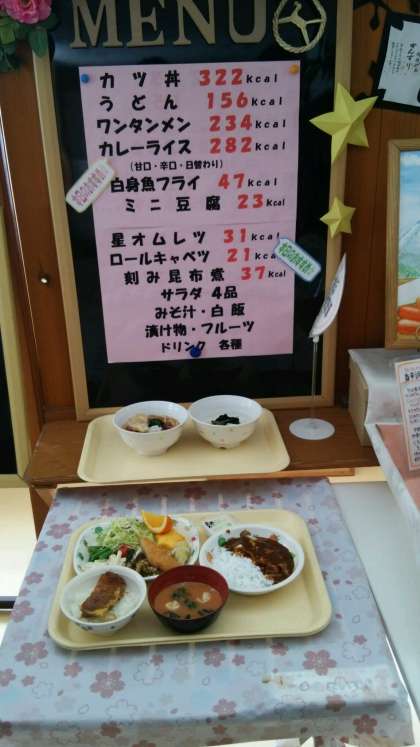 MENU
カツ丼 322 Kcal
うどん 156 Kcal
ワンタンメン 234 Kcal
カレーライス 282 Kcal
(甘口・辛口・日替わり)
白身魚フライ 47 Kcal
ミニ豆腐 23 Kcal
星オムレツ 31 Kcal
ロールキャベツ 21 Kcal
刻み昆布煮 37 Kcal
サラダ 4品
みそ汁・白飯
漬け物・フルーツ
ドリンク 各種